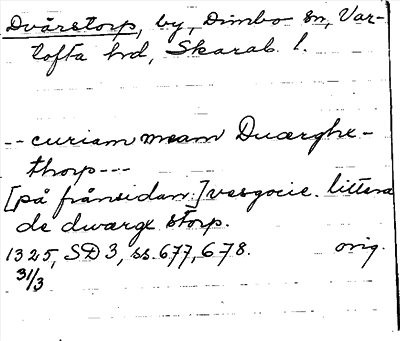 Dvärstorp, by, Dimbo sn, Var-
tofta hd, Skarab. l.
-- curiam meam Duærghe-
thorp---
[på frånsidan:] vesgocie. littera
de dwærge storp.
1325, SD 3, ss. 677, 678. orig.
31/3